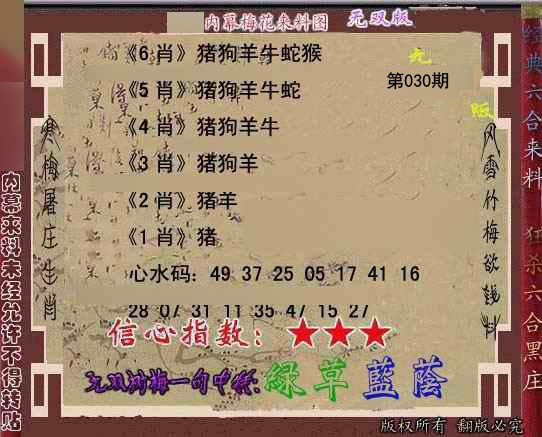 内幕梅花来料图 无双版
《6 肖》猪狗羊牛蛇猴
《5 肖》猪狗羊牛蛇
《4 肖》猪狗羊牛
《3 肖》猪狗羊
《2 肖》猪羊
《1 肖》猪
第030期
心水码：49 37 25 05 17 41 16
28 07 31 11 35 47 15 27
信心指数：★★★
一句中特:綠草藍蔭
寒梅屠庄生肖
风雪竹梅欲钱料
内幕来料未经允许不得转贴
经典六合来料
狂杀六合黑庄
版权所有 翻版必究